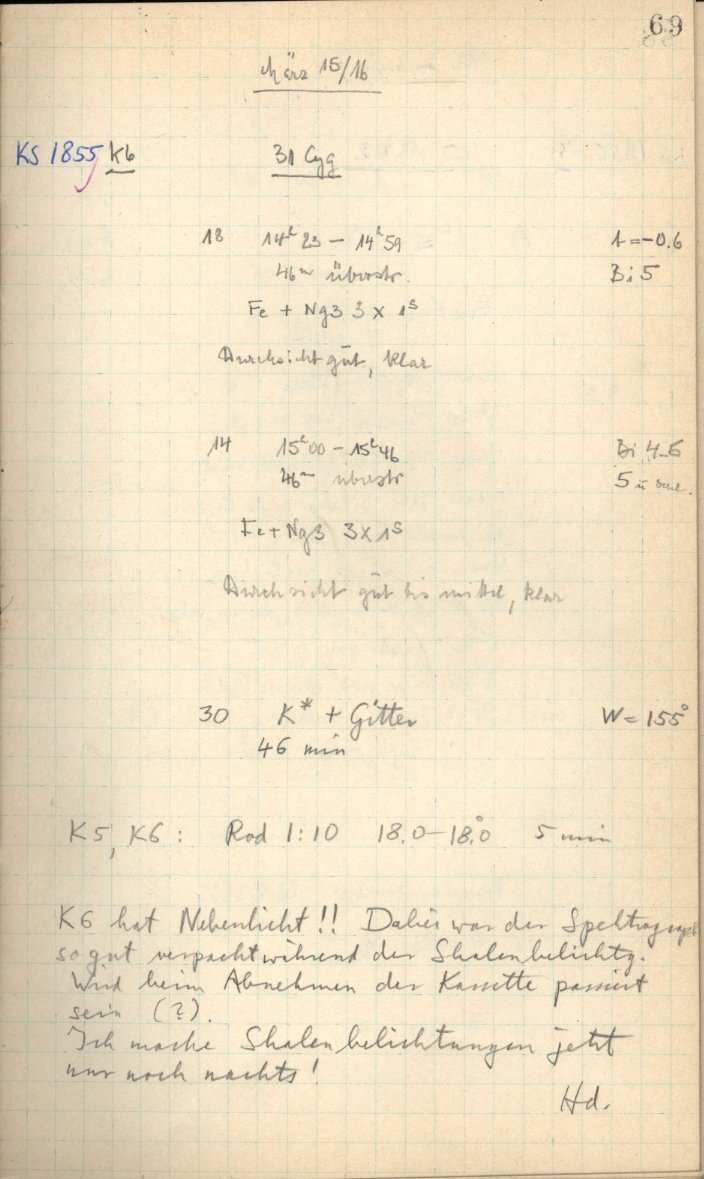 69
März 15/16
KS 1855 K6 31 Cyg
18 14h 23 – 14h 59 t = –0.6
46m überstr. Bi 5
Fe + Ng3 3 x 1s
Durchsicht gut, klar
14 15h 00 – 15h 46 Bi 4-5
46m überstr 5 u
Fe + Ng3 3 x 1s
Durchsicht gut bis mittel, klar
30 K* + Gitter W = 155°
46 min
K5, K6 : Rod 1:10 18.0–18.0° 5 min
K6 hat Nebenlicht!! Dabei war der Spektrograph
so gut verpackt während der Skalenbelichtg.
Wird beim Abnehmen der Kassette passiert
sein (?).
Ich mache Skalenbelichtungen jetzt
nur noch nachts!
Hd.